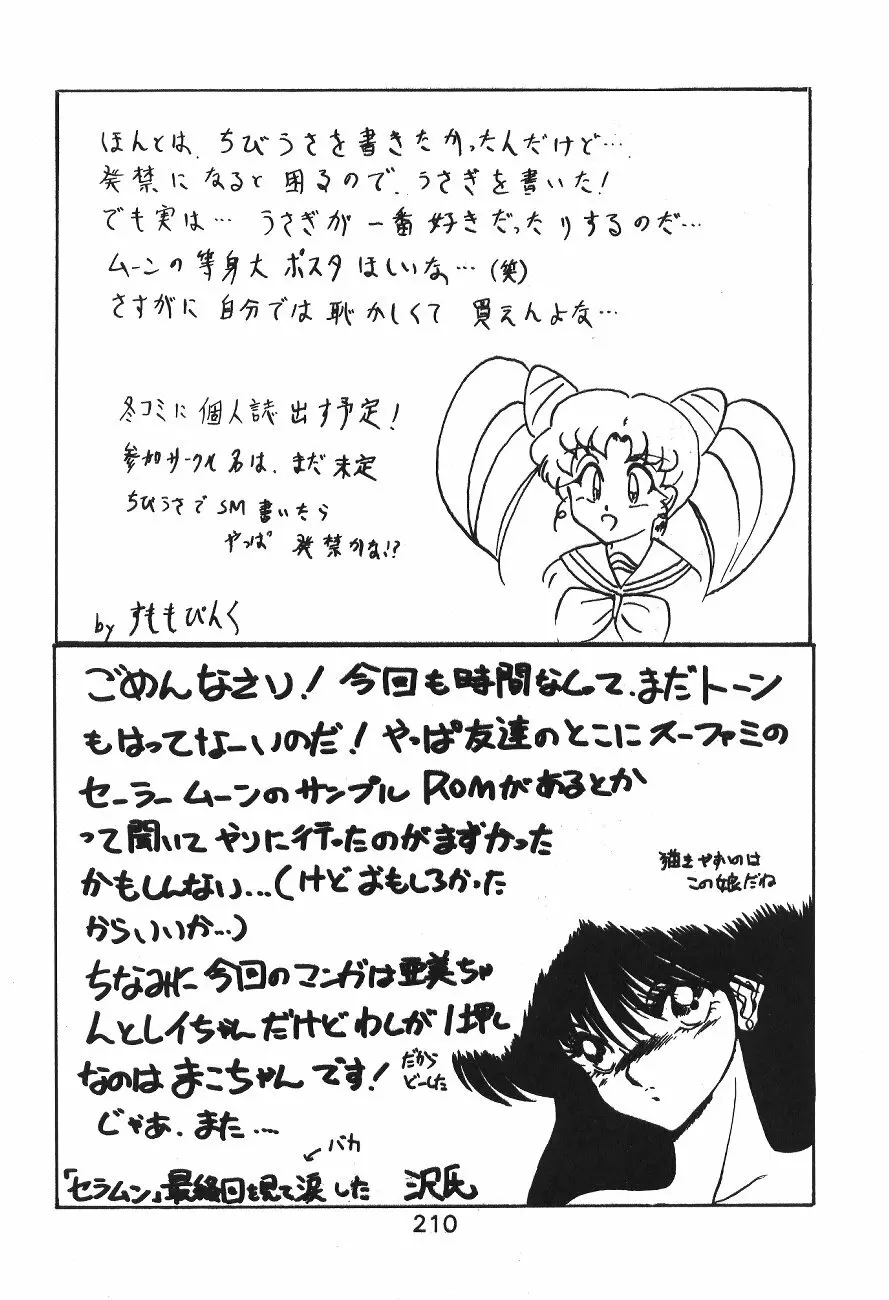 ほんとは、ちびうさを書きたかったんだけど…
発禁になると困るので、うさぎを書いた！
でも実は…うさぎが一番好きだったりするのだ…
ムーンの等身大ポスタほしいな…(笑)
さすがに自分では恥かしくて買えんよな…
冬コミに個人誌出す予定！
参加サークル名は、まだ未定
ちびうさでSM書いたら
やっぱ発禁かな!?
by すももぴんく
ごめんなさい！今回も時間なくって、まだトーン
もはってなーいのだ！やっぱ友達のとこにスーファミの
セーラームーンのサンプルROMがあるとか
って聞いてやりに行ったのがまずかった
かもしんない…(けどおもしろかった
からいいか…)
ちなみに今回のマンガは亜美ちゃ
んとレイちゃんだけどわしが1押し
なのはまこちゃんです！
だから
どーした
じゃあ、また…
バカ
「セラムン」最終回を見て涙した 沢氏
描きやすいのは
この娘だね
210